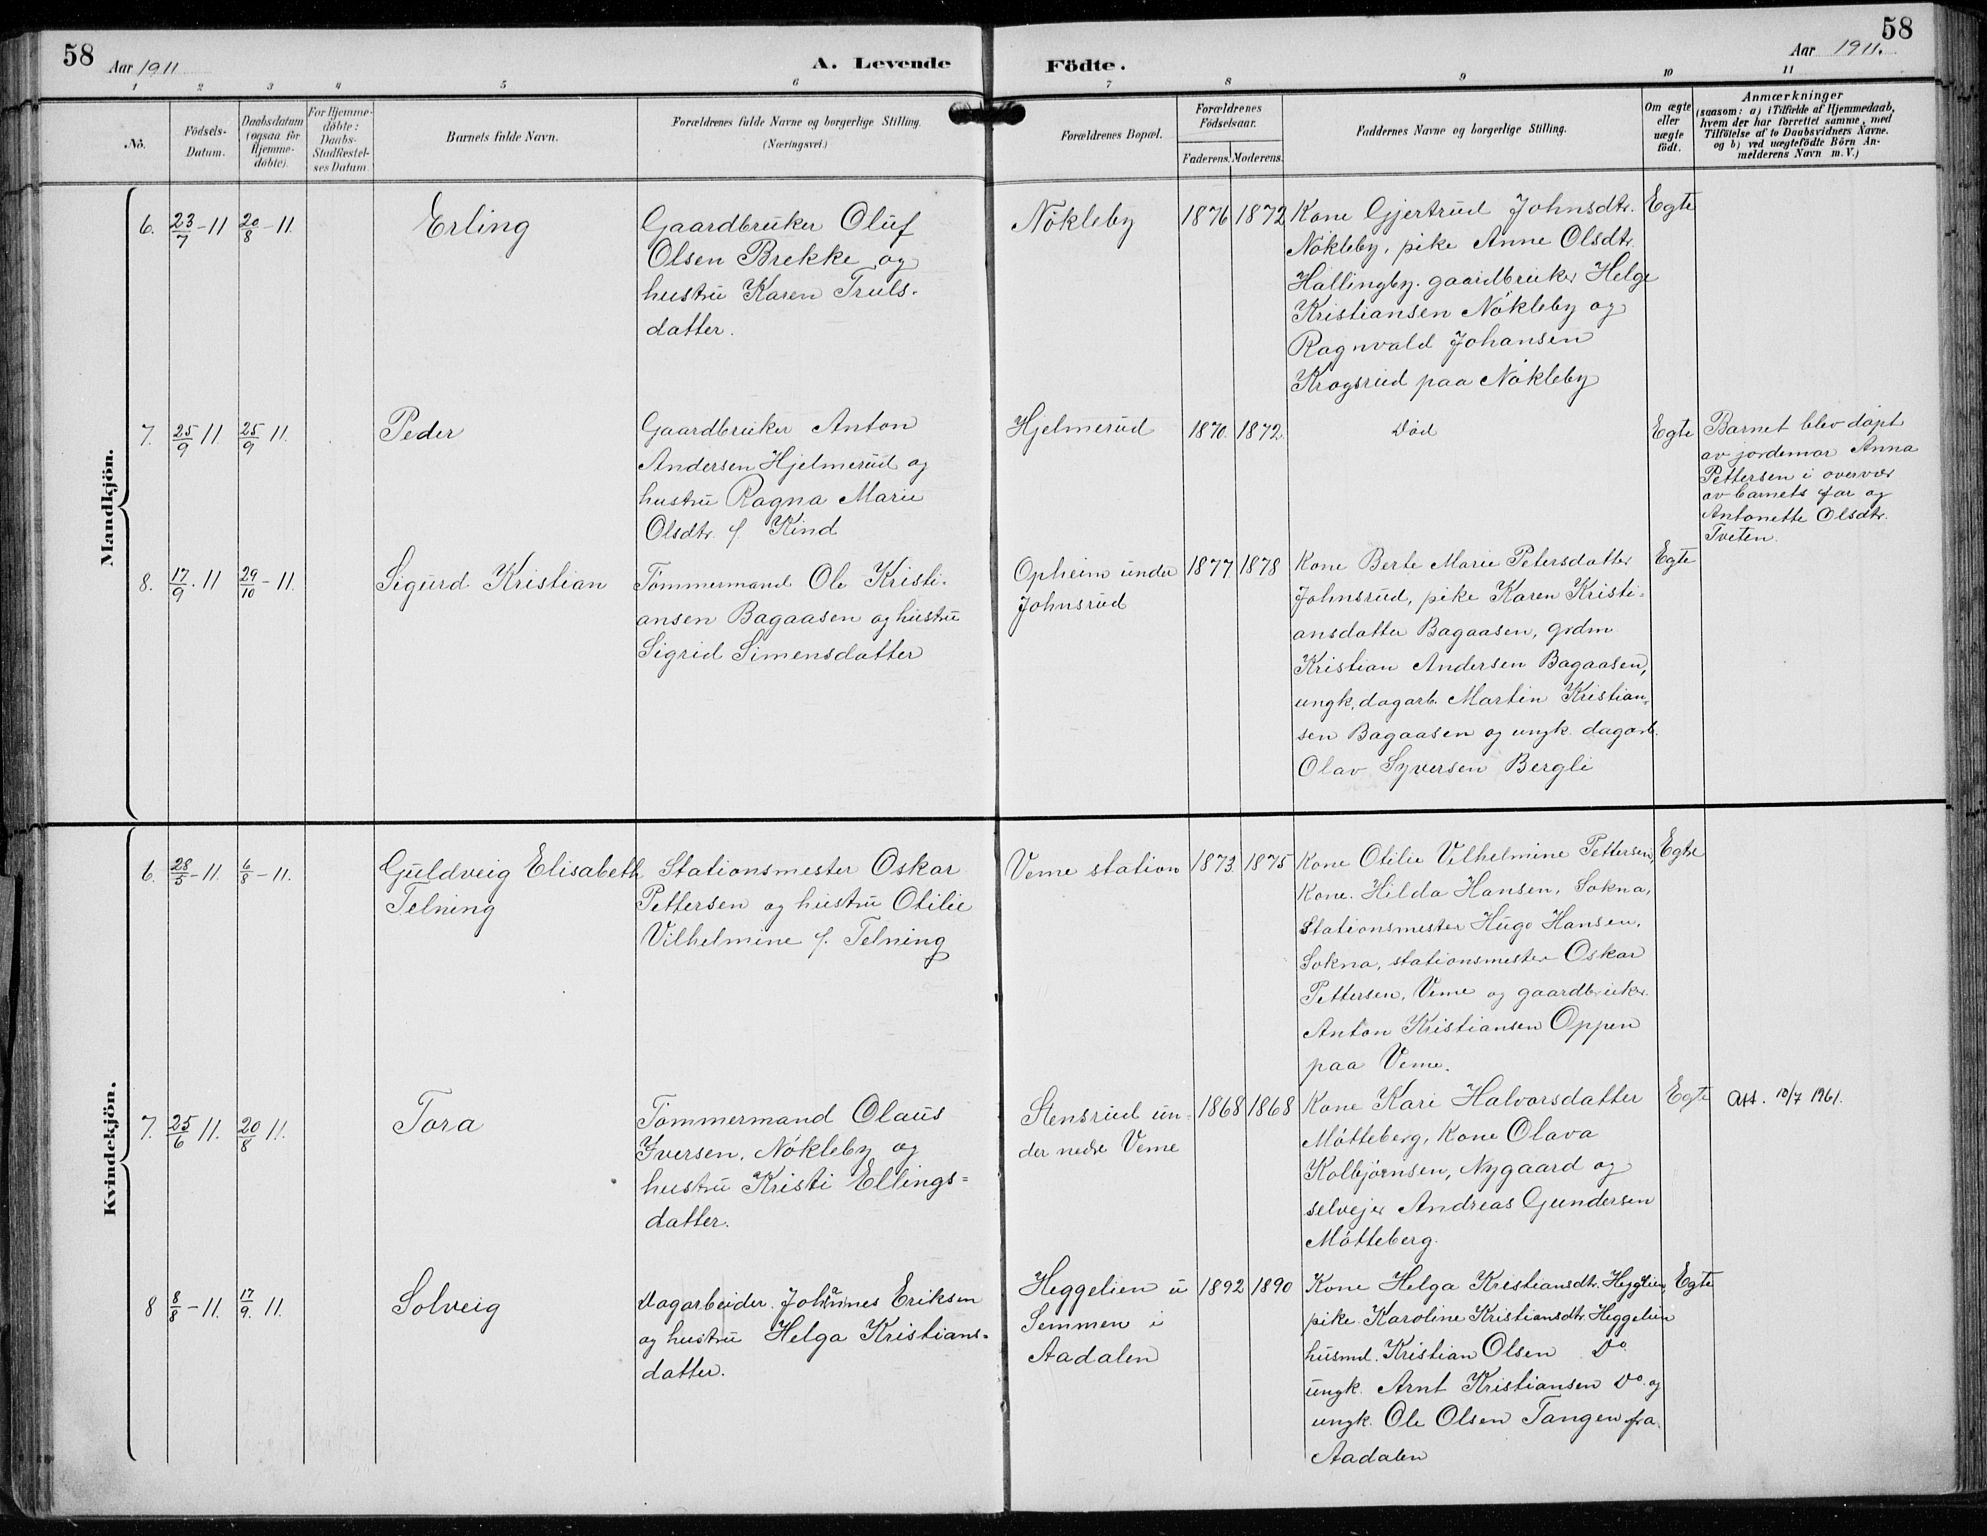 58
Aar 1911
A. Levende
Födte.
Aar 1911.
58
1 2 3 4 5 6 7 8 9 10 11
No.
Födsels-
Datum.
Daabsdatum
(ogsaa for
Hjemme-
döbte).
For Hjemme-
döbte:
Daabs-
Stadfæstel-
ses Datum.
Barnets fulde Navn.
Forældrenes fulde Navne og borgerlige Stilling.
(Næringsvei.)
Forældrenes Bopæl.
Forældrenes
Födselsaar.
Faderens.
Moderens.
Faddernes Navne og borgerlige Stilling.
Om ægte
eller
uægte
födt.
Anmærkninger
(saasom: a) i Tilfælde af Hjemmedaab,
hvem der har forrettet samme, med
Tilföielse af to Daabsvidners Navne.
og b) ved uægtefödte Börn An-
melderens Navn m. V.)
Mandkjön.
6. 23/7 - 11 20/8 - 11.
Erling
Gaardbruker Oluf
Olsen Brekke og
hustru Karen Truls-
datter.
Nökleby
1876 1872
Kone Gjertrud Johnsdtr.
Nökleby, pike Anne Olsdtr.
Hallingby. gaardbruker Helge
Kristiansen Nökleby og
Ragnvald Johansen
Krogsrud paa Nökleby
Egte
7. 25/9 11 25/9 11.
Peder
Gaardbruker Anton
Andersen Hjelmerud og
hustru Ragna Marie
Olsdtr. f. Kind
Hjelmerud
1870. 1872.
Död
Egte
Barnet blev döpt
av jordemor Anna
Pettersen i overvær
av barnets far og
Antonette Olsdtr.
Tveten.
8. 17/9 . 11 29/10 - 11.
Sigurd Kristian
Tömmermand Ole Kristi-
ansen Bagaasen og hustru
Sigrid Simensdatter
Opheim under
Johnsrud
1877 1878
Kone Berte Marie Petersdatter
Johnsrud, pike Karen Kristi-
ansdatter Bagaasen, grdm
Kristian Andersen Bagaasen,
ungk. dagarb. Martin Kristian-
sen Bagaasen og ungk. dagarb.
Olav Syversen Bergli
Egte
Kvindekjön.
6. 28/5 - 11. 6/8 - 11.
Guldveig Elisabeth
Telning
Stationsmester Oskar
Pettersen og hustru Otilie
Vilhelmine f. Telning
Veme station
1873. 1875
Kone Otilie Vilhelmine Pettersen,
Kone. Hilda Hansen, Sokna,
Stationsmester Hugo Hansen,
Sokna, stationsmester Oskar
Pettersen, Veme og gaardbruker
Anton Kristiansen Oppen
paa Veme.
Egte
7. 25/6 11. 20/8 11.
Tora
Tömmermand Olaus
Iversen, Nökleby og
hustru Kristi Ellings-
datter.
Stensrud un-
der nedre Veme
1868 1868
Kone Kari Halvorsdatter
Mötteberg, Kone Olava
Kolbjørnsen, Nygaard og
selveier Andreas Gundersen
Mötteberg.
Egte
Att. 10/7 1961.
8 8/8 - 11. 17/9. 11.
Solveig
Dagarbeider. Johannes Eriksen
og hustru Helga Kristians-
datter.
Heggelien u
Semmen i
Aadalen
1892 1890
Kone Helga Kristiansdtr. Heggelien,
pike. Karoline Kristiansdtr. Heggelien
husmd. Kristian Olsen Do.
ungk. Arnt Kristiansen Do. og
ungk. Ole Olsen Tangen fra.
Aadalen
Egte